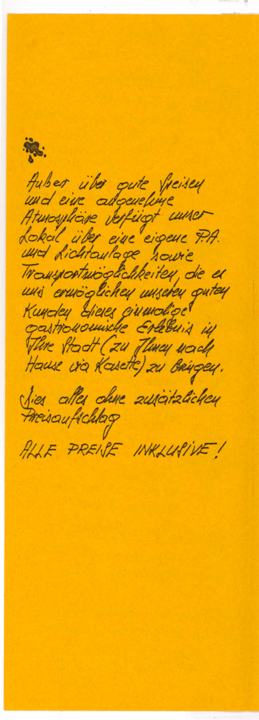 Außer über gute Speisen
und eine angenehme
Atmosphäre verfügt unser
Lokal über eine eigene P.A.
und Lichtanlage sowie
Transportmöglichkeiten, die es
uns ermöglichen unseren guten
Kunden dieses einmalige
gastronomische Erlebnis in
Ihre Stadt (zu Ihnen nach
Hause via Kasette) zu bringen.
Dies alles ohne zusätzlichen
Preisaufschlag
ALLE PREISE INKLUSIVE!